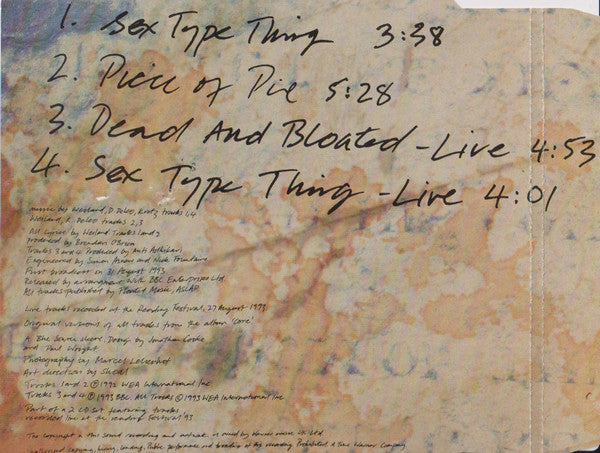 1. Sex Type Thing 3:38
2. Piece of Pie 5:28
3. Dead And Bloated - Live 4:53
4. Sex Type Thing - Live 4:01
music by Weiland, D. DeLeo, Kretz tracks 1,4
Weiland, R. DeLeo tracks 2,3
All lyrics by Weiland Tracks 1 and 3
produced by Brendan O'Brien
Tracks 3 and 4 Produced by
Engineered by Simon and Nick Fountaine
First broadcast on 31 August 1993
Released by arrangement With BBC Enterprises Ltd
All tracks published by Music, ASCAP
Live tracks recorded at the Reading Festival, 27 August 1993
Original versions of all tracks from the album 'Core'
A Blue Source sleeve. Design by Jonathan Cooke
and Paul Wright
Photography by Marcel
Art direction by
Tracks 1 and 2 Ⓟ 1992 WEA International Inc
Tracks 3 and 4 Ⓟ 1993 BBC. All Tracks © 1993 WEA International Inc
Part of a 2 CD set featuring tracks
recorded live at the reading Festival '93
The copyright in this sound recording and artwork is owned by Warner music UK Ltd.
copying, hiring, lending, Public performance and broadcasting of this recording Prohibited. A Time Warner Company